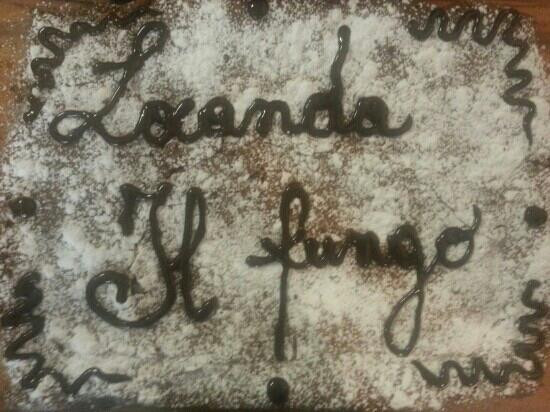 Locanda
Il fungo